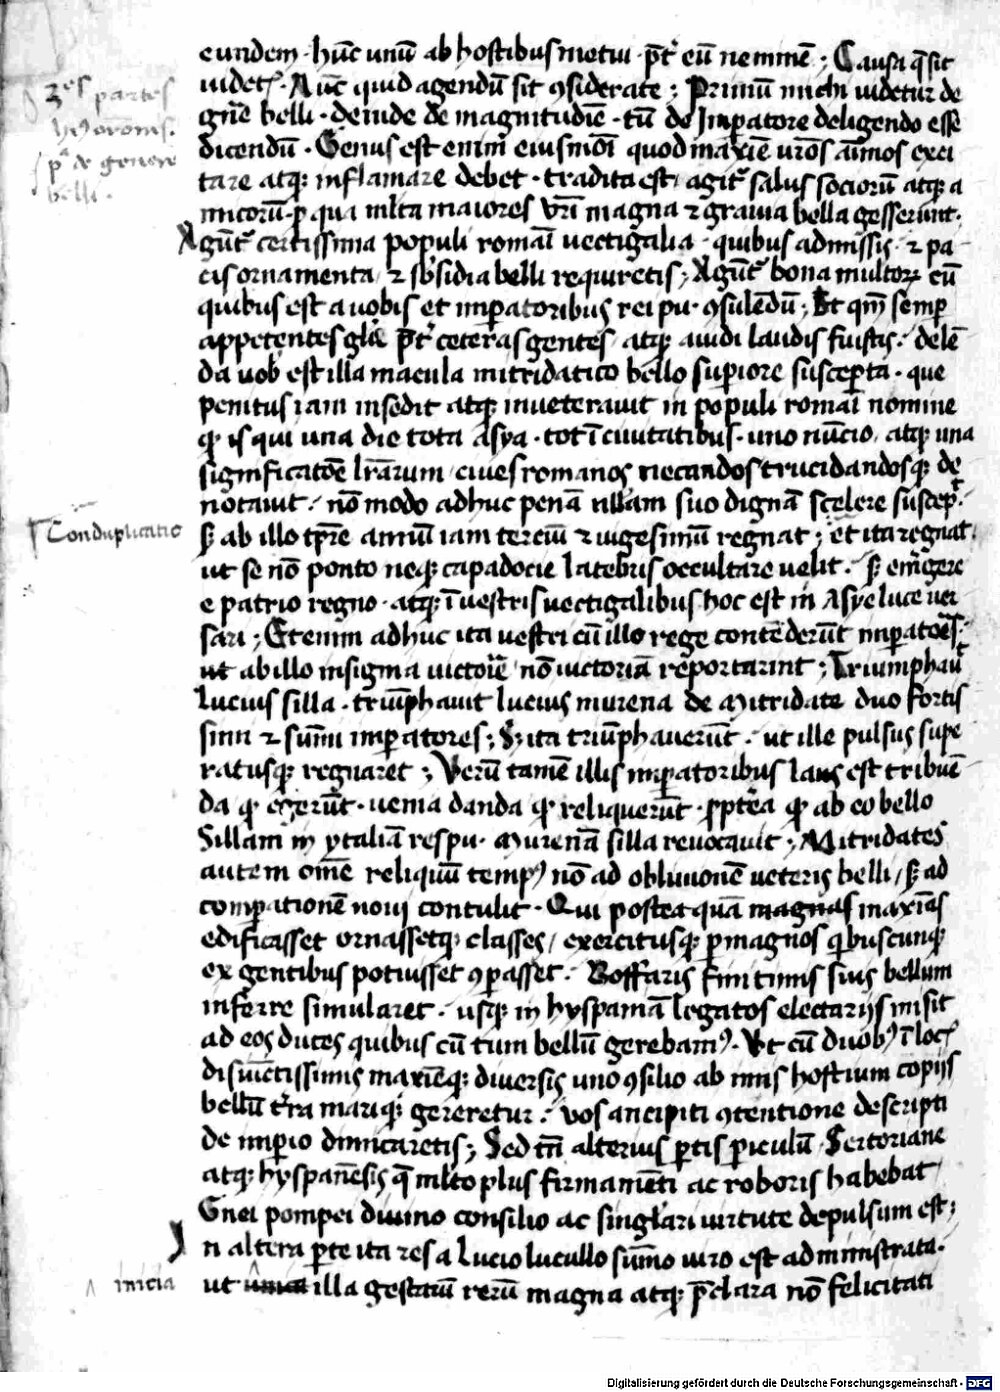 eundem · hūc unū ab hostibus metui · p̄t̄ eū neminē ; Causa q̄ sit
uidet᷑ · Nūc quid agendū sit ꝯsiderate ; Primū michi uidetur de
3es partes
gn̄e belli · deinde de magnitudīe · tū de Imꝑatore deligendo esse
hꝰ oronis ·
dicendū · Genus est enim eiusmōi quod maxīe uros aīmos exci
pa de genere
tare atqꝫ inflamare debet · tradita est agit᷑ salus sociorū atqꝫ a
belli ·
micorū · ꝓ qua mlta maiores vrī magna ⁊ grauia bella gesserunt ·
Agūt᷑ certissima populi romāi uectigalia · quibus admissis ⁊ pa
cis ornamenta ⁊ sbsidia belli requiretis ; Agūt᷑ bona multoꝝ cū
quibus est a uobis et imꝑatoribus rei pu · ꝯsulēdū ; Et qm̄ semꝑ
appetentes glīe p̄t̄ ceteras gentes atqꝫ auidi laudis fuistis · delē
da uob est illa macula mitridatico bello suꝑiore susceꝑta · que
penitus iam insedit atqꝫ inueterauit in populi romāi nomine
ꝙ is qui una die tota asya · tot ī ciuitatibus · uno nūcio atqꝫ una
significatōe lrārum ciues romanos necandos trucidandosqꝫ de
notauit · nō modo adhuc penā nllam suo dignā scelere suscep̄t
Conduplicatio
sꝫ ab illo tp̄re annū iam terciū ⁊ uigesimū regnat ; et ita regnat
ut se nō ponto neqꝫ capadocie latebris occultare uelit · sꝫ em̄gere
e patrio regno · atqꝫ ī uestris uectigalibus hoc est in Asye luce uer
sari ; Etenim adhuc ita uestri cū illo rege contēderūt imꝑatōes
ut ab illo insignia uictorīe nō uictoriā reportarint ; Triumphau̅t
Lucius silla · triūphauit lucius murena de Mitridate duo fortis
simi ⁊ sūmi imꝑatores ; Sꝫ ita triūphauerūt · ut ille pulsus supe
ratusqꝫ regnaret ; Verū tamē illis imꝑatoribus laus est tribuē
da ꝙ egerūt · uenia danda ꝙ reliquerūt · ꝓpt̄ea ꝙ ab eo bello
Sillam in ytaliā respu · Murenā silla reuocauit ; Mitridates
autem om̄e reliquū tempꝰ nō ad obliuionē ueteris belli / sꝫ ad
comꝑationē noui contulit · Qui postea quā magnas maxīas
edificasset ornassetqꝫ classes / exercitusqꝫ ꝑmagnos qͥbuscunqꝫ
ex gentibus potuisset ꝯꝑasset · Boffaris finitimis suis bellum
inferre simularet · usqꝫ in hyspaniā legatos electarijs misit
ad eos duces quibus cū tum bellū gerebamꝰ · Vt cū duobꝰ ī locꝭ
disiūctissimis maxīeqꝫ diuersis uno ꝯsilio ab imis hostium copijs
bellū t̄ra mariqꝫ gereretur · vos ancipiti ꝯtentione descripti
de imꝑio dimicaretis ; Sed tn̄ alterius ꝑtis ꝑiculū Sertoriane
atqꝫ hyspanēsis q̄ mlto plus firmamēti ac roboris habebat
Gnei pompei diuino consilio ac singl̄ari uirtute depulsum est ;
In altera ꝑte ita res a Lucio lucullo sūmo uiro est administrata ·
inicia
ut illa gestaru̅ rerū magna atqꝫ p̄clara nō felicitati
Digitalisierung gefördert durch die Deutsche Forschungsgemeinschaft - DFG